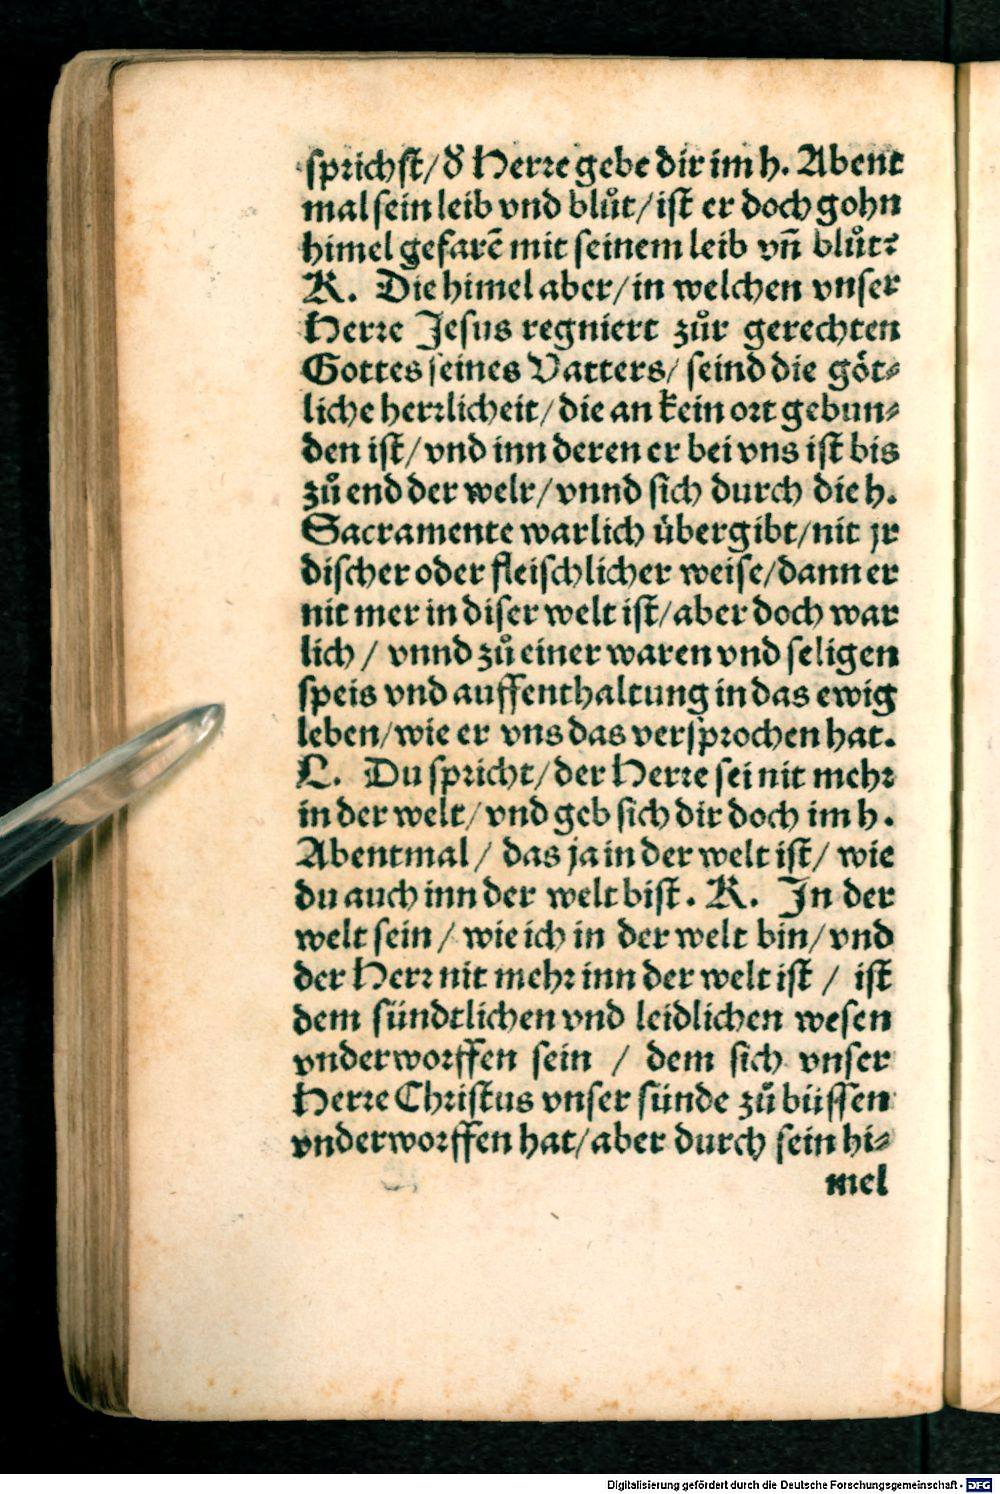 sprichst/ ð Herre gebe dir im h. Abent
mal sein leib vnd blůt/ ist er doch gohn
himel gefarē mit seinem leib vñ blůt?
K. Die himel aber/ in welchen vnser
Herre Jesus regniert zůr gerechten
Gottes seines Vatters/ seind die göt⸗
liche herrlicheit/ die an kein ort gebun⸗
den ist/ vnd inn deren er bei vns ist bis
zů end der welt/ vnnd sich durch die h.
Sacramente warlich übergibt/ nit jr
discher oder fleischlicher weise/ dann er
nit mer in diser welt ist/ aber doch war
lich / vnnd zů einer waren vnd seligen
speis vnd auffenthaltung in das ewig
leben/ wie er vns das versprochen hat.
L. Du spricht/ der Herre sei nit mehr
in der welt/ vnd geb sich dir doch im h.
Abentmal / das ja in der welt ist/ wie
du auch inn der welt bist. K. In der
welt sein / wie ich in der welt bin/ vnd
der Herr nit mehr inn der welt ist / ist
dem sündtlichen vnd leidlichen wesen
vnderworffen sein / dem sich vnser
Herre Christus vnser sünde zů büssen
vnderworffen hat/ aber durch sein hi⸗
mel
Digitalisierung gefördert durch die Deutsche Forschungsgemeinschaft - DFG